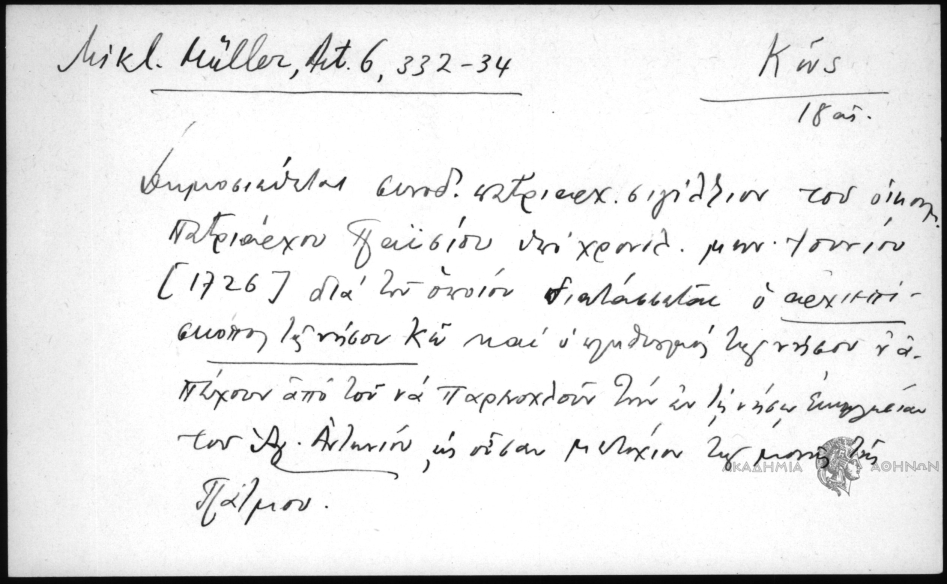 Mikl. Müller, Act. 6, 332-34
Κῶς
18 αἰ.
Δημοσιεύεται συνοδ. πατριαρχ. σιγίλλιον τοῦ οἰκουμ.
Πατριάρχου Παϊσίου ὑπὸ χρονολ. μην. Ἰουνίου
[1726] διὰ τοῦ ὁποίου διατάσσεται ὁ ἀρχιεπί-
σκοπος τῆς νήσου Κῶ καὶ ὁ πληθυσμὸς τῆς νήσου ν' ἀ-
πέχουν ἀπὸ τοῦ νὰ παρενοχλοῦν τὴν ἐν τῇ νήσῳ ἐκκλησίαν
τοῦ Ἁγ. Ἀντωνίου, ὡς οὖσαν μετόχιον τῆς μονῆς τῆς
Πάτμου.
ΑΚΑΔΗΜΙΑ ΑΘΗΝΩΝ